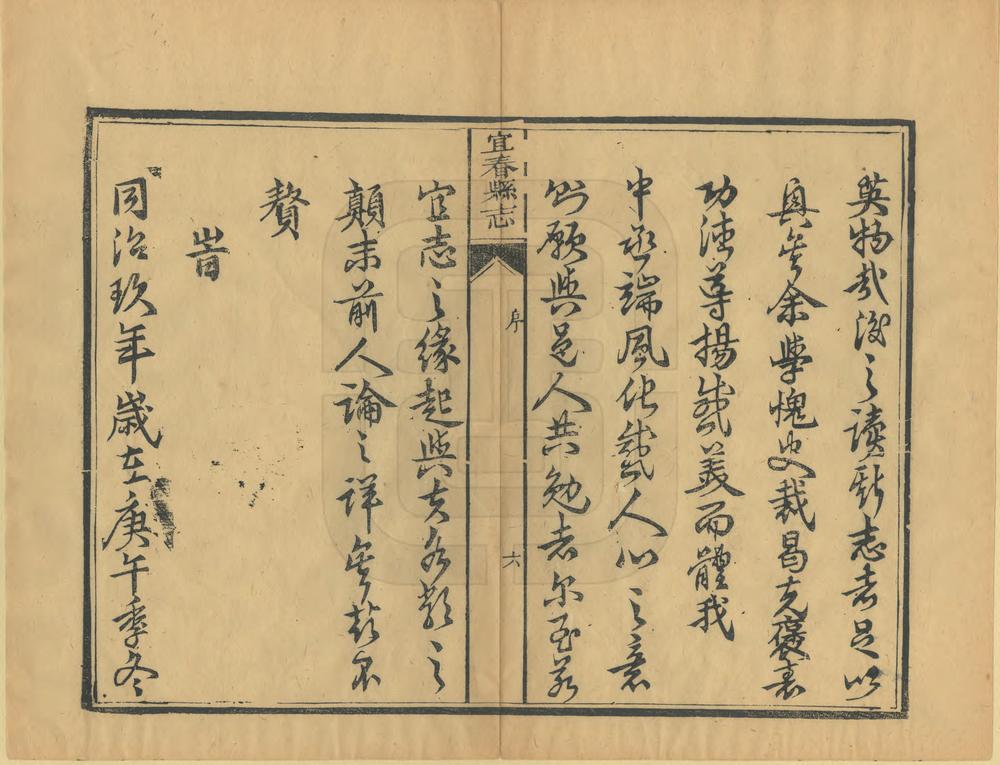 英物哉後之讀斯志者足以
興矣余學愧史裁曷克褒表
功德導揚盛美而體我
中丞端風化人心之意
則願與邑人共勉者尔至若
宜春縣志
序
六
宜志之緣起與夫分類之
顛末前人論之詳矣故不
贅
旹
同治玖年歲在庚午季冬